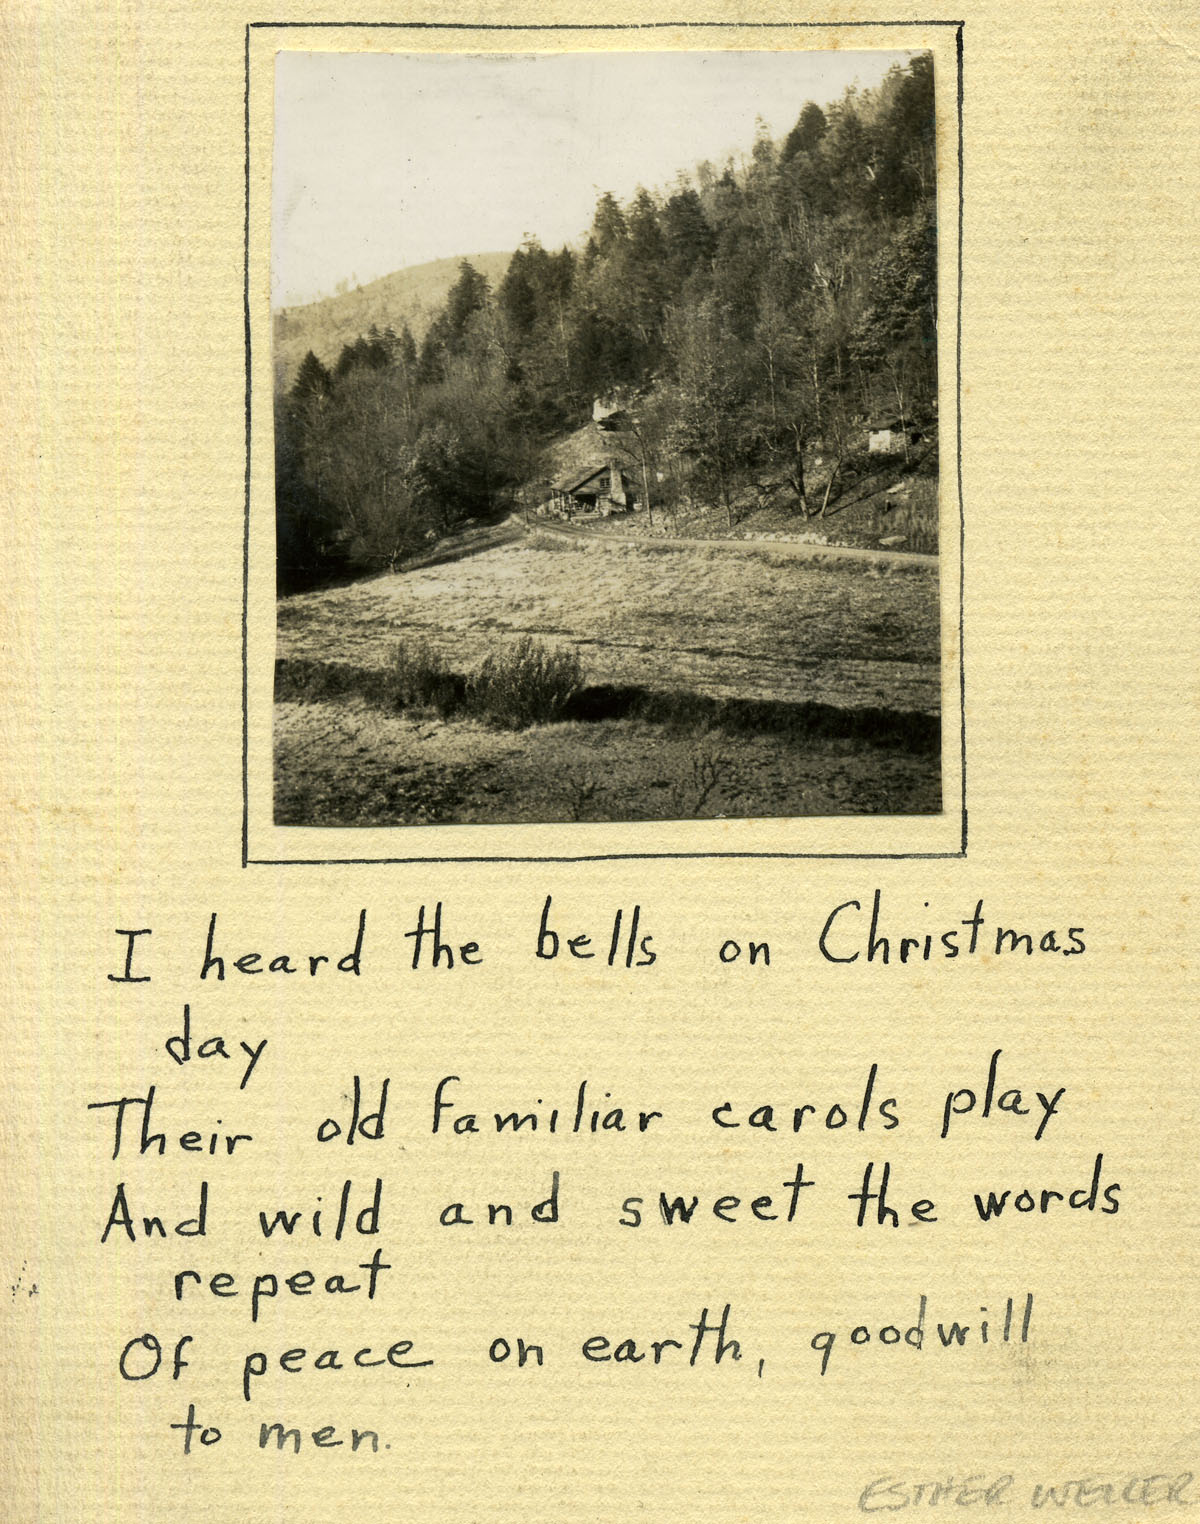 I heard the bells on Christmas
day
Their old familiar carols play
And wild and sweet the words
repeat
Of peace on earth, goodwill
to men.
ESTHER WELLER